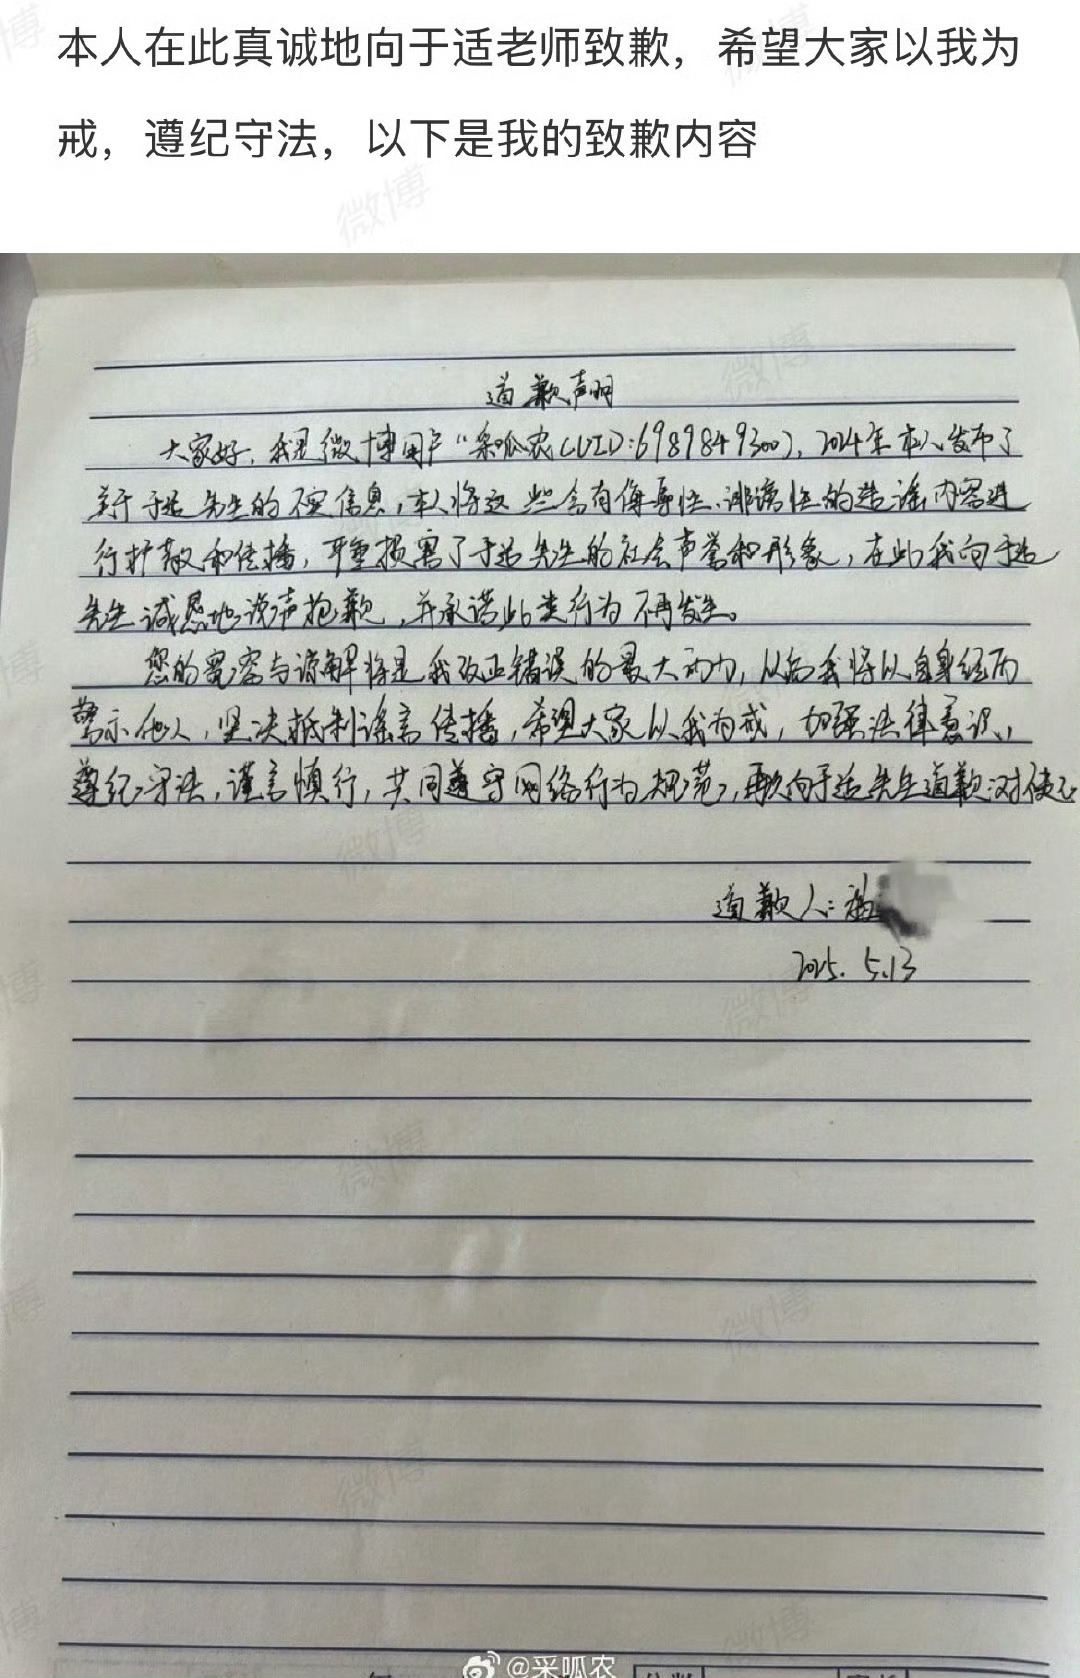 本人在此真诚地向于适老师致歉，希望大家以我为
戒，遵纪守法，以下是我的致歉内容
道歉声明
大家好，我是微博用户“采呱农(UID:6989849300)，2024年本人发布了
关于于适先生的不实信息，本人将这些含有侮辱性、诽谤性的造谣内容进
行扩散和传播，严重损害了于适先生的社会声誉和形象，在此我向于适
先生诚恳地说声抱歉，并承诺此类行为不再发生。
您的宽容与谅解将是我改正错误的最大动力，以后我将以自身经历
警示他人，坚决抵制谣言传播，希望大家以我为戒，加强法律意识，
遵纪守法，谨言慎行，共同遵守网络行为规范，再次向于适先生道歉：对使不
道歉人：
2025.5.13
@采呱农
微博